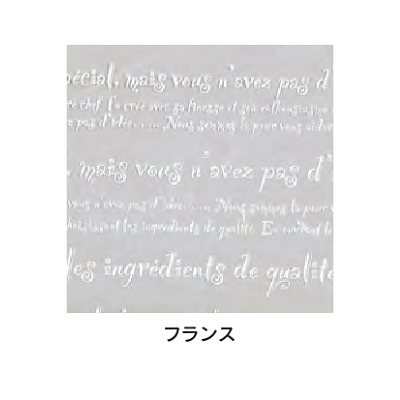 pécial, mais vous n'avez pas d'
re chef. Ce créé avec sa finesse et son enthousiasme
ez pas d'idée..... Nous sommes là pour vous aider
, mais vous n'avez pas d'i
vous n'avez pas d'idée..... Nous sommes là pour v
choisissant les ingrédients de qualité. En
les ingrédients de qualité
フランス